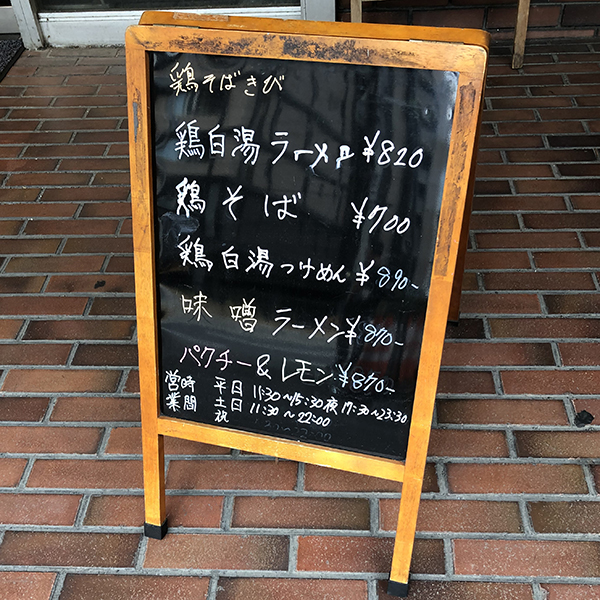 鶏そばきび
鶏白湯ラーメン ¥820
鶏そば ¥700
鶏白湯つけめん ¥890-
味噌ラーメン ¥870-
パクチー&レモン ¥870-
営業時間 平日 11:30〜15:30 夜 17:30〜23:30
土日祝 11:30〜22:00